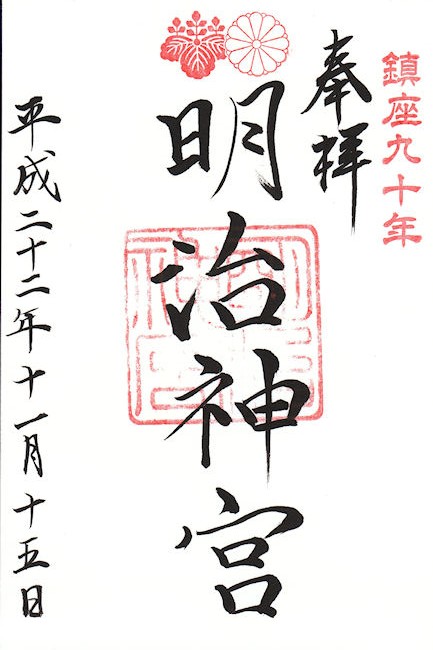 鎮座九十年
奉拝
明治神宮
平成二十二年十一月十五日